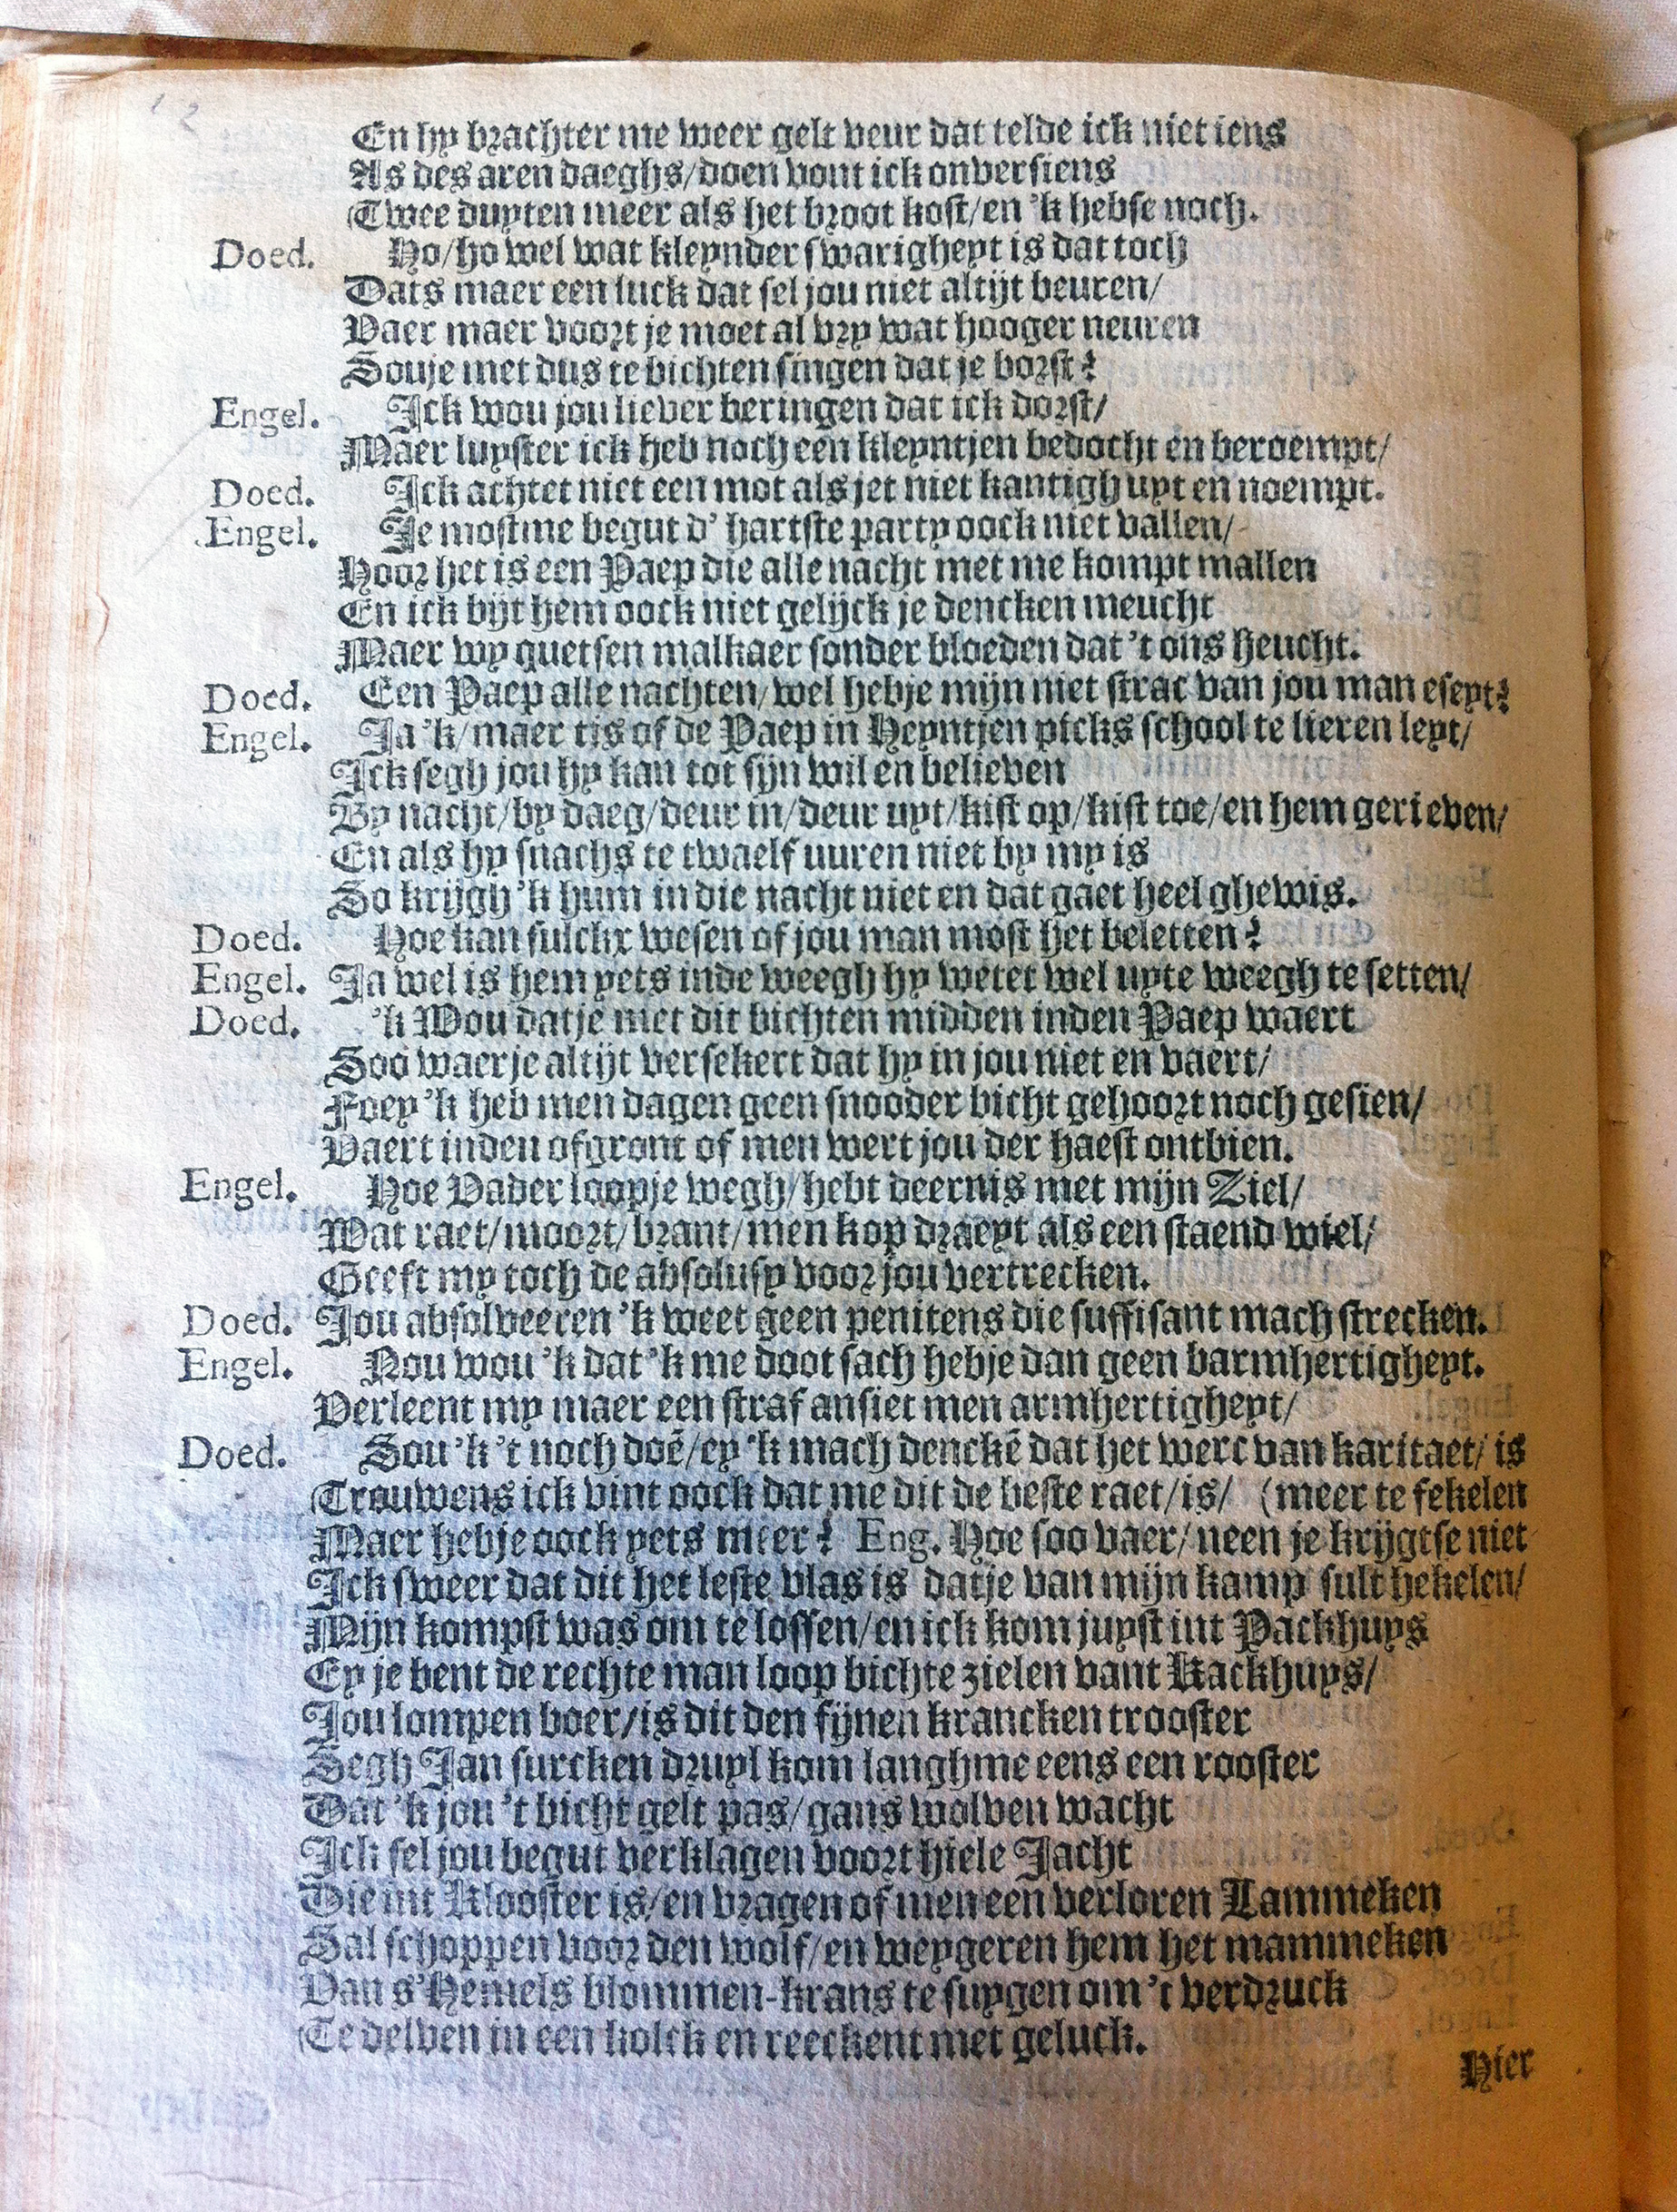 12
En hy brachter me weer gelt veur dat telde ick niet iens
As des aren daeghs/doen vont ick onversiens
Twee duyten meer als het broot kost/en 'k hebse noch.
Doed. Ho/ho wel wat kleynder swarigheyt is dat toch
Dats maer een luck dat sel jou niet altijt beuren/
Vaer maer voort je moet al vry wat hooger neuren
Souje met dus te bichten singen dat je borst?
Engel. Ick wou jou liever beringen dat ick dorst/
Maer luyster ick heb noch een kleyntjen bedocht en beroempt/
Doed. Ick achtet niet een mot als jet niet kantigh uyt en noempt.
Engel. Je mostme begut d' hartste party oock niet vallen/
Hoor het is een Paep die alle nacht met me kompt mallen
En ick bijt hem oock niet gelijck je dencken meucht
Maer wy quetsen malkaer sonder bloeden dat 't ons heucht.
Doed. Een Paep alle nachten/wel hebje mijn niet strac van jou man eseyt?
Engel. Ja 'k/maer tis of de Paep in Heyntjen picks school te lieren leyt/
Ick segh jou hy kan tot sijn wil en believen
By nacht/by daeg/deur in/deur uyt/kist op/kist toe/en hem gerieven/
En als hy snachs te twaelf uuren niet by my is
So krijgh 'k hum in die nacht niet en dat gaet heel ghewis.
Doed. Hoe kan sulckx wesen of jou man most het beletten?
Engel. Ja wel is hem yets inde weegh hy wetet wel uyte weegh te setten/
Doed. 'k Wou datje met dit bichten midden inden Paep waert
Soo waerje altijt versekert dat hy in jou niet en vaert/
Foey 'k heb men dagen geen snooder bicht gehoort noch gesien/
Vaert inden ofgront of men wert jou der haest ontbien.
Engel. Hoe Vader loopje wegh/hebt deernis met mijn Ziel/
Wat raet/moort/brant/men kop draeyt als een staend wiel/
Geeft my toch de absolusy voor jou vertrecken.
Doed. Jou absolveeren 'k weet geen penitens die suffisant mach strecken.
Engel. Nou wou 'k dat 'k me doot sach hebje dan geen barmhertigheyt.
Verleent my maer een straf ansiet men armhertigheyt/
Doed. Sou 'k 't noch doē/ey 'k mach denckē dat het werc van karitaet/ is
Trouwens ick vint oock dat me dit de beste raet/is/ (meer te fekelen
Maer hebje oock yets meer? Eng. Hoe soo vaer/neen je krijgtse niet
Ick sweer dat dit het leste vlas is datje van mijn kamp sult hekelen/
Mijn kompst was om te lossen/en ick kom juyst int Packhuys
Ey je bent de rechte man loop bichte zielen vant Kackhuys/
Jou lompen boer/is dit den fijnen krancken trooster
Segh Jan surcken druyl kom langhme eens een rooster
Dat 'k jou 't bicht gelt pas/gans wolven wacht
Ick sel jou begut verklagen voort hiele Jacht
Die int Klooster is/en vragen of men een verloren Lammeken
Sal schoppen voor den wolf/en weygeren hem het mammeken
Van s'Hemels blommen-krans te suygen om 't verdruck
Te delven in een kolck en reeckent met geluck.
Hier